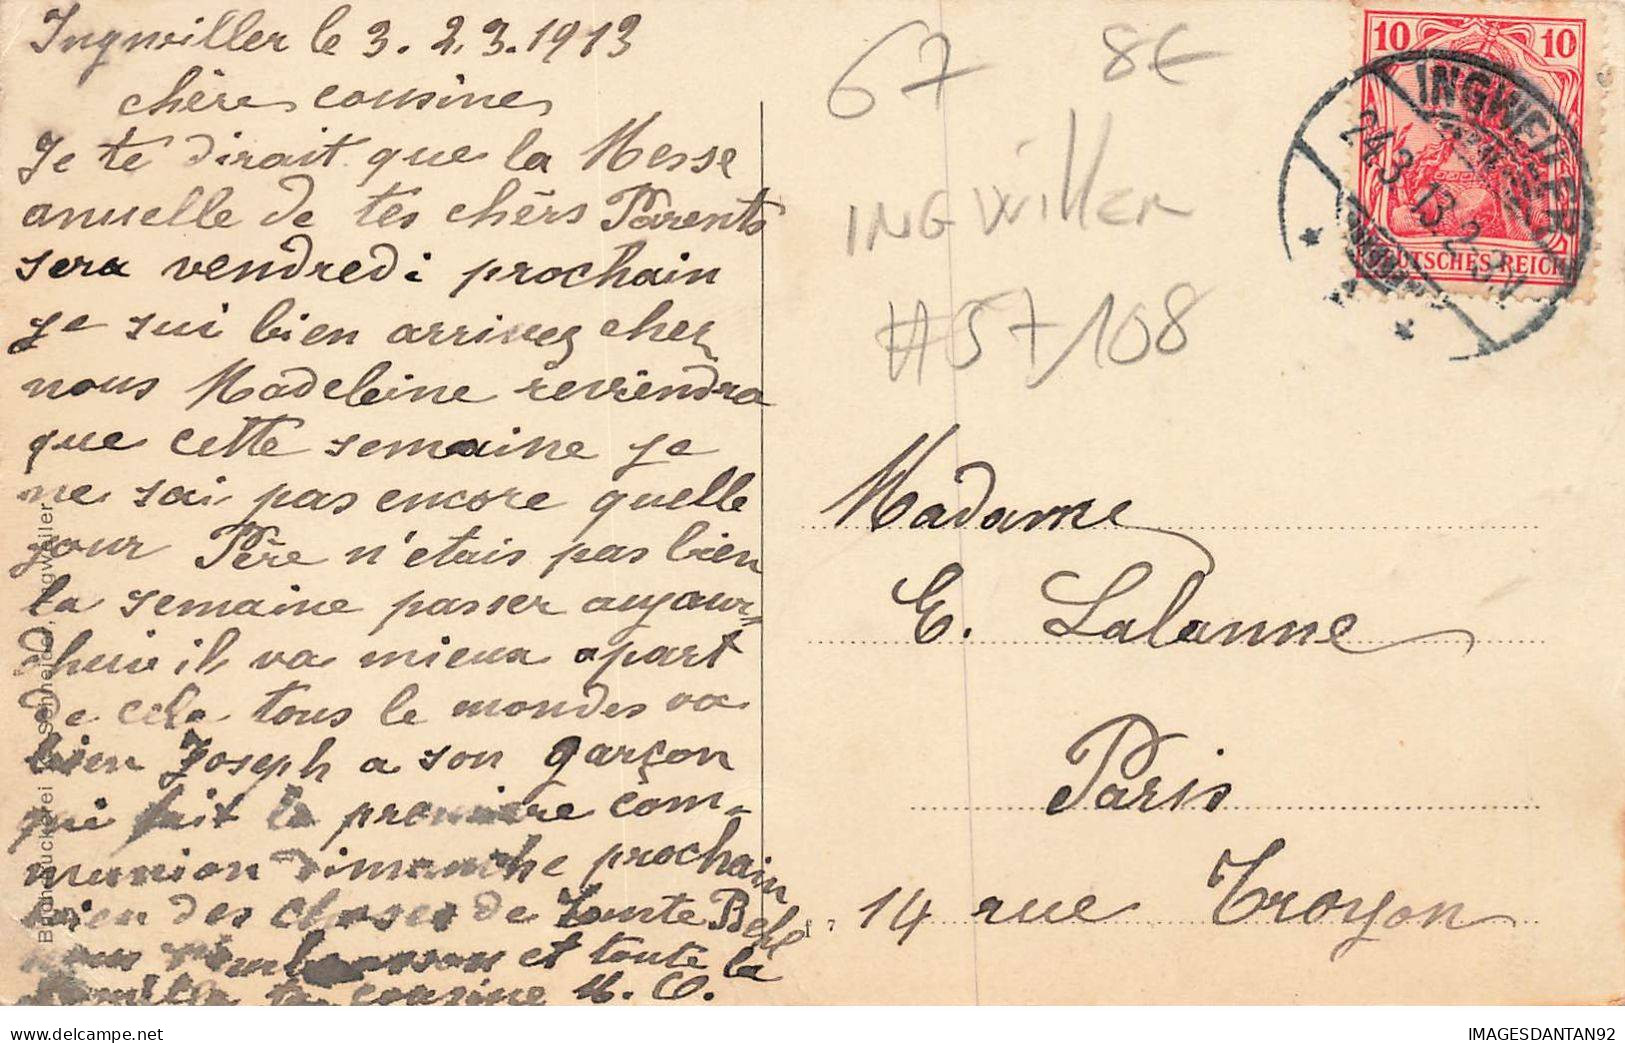 Ingwiller le 3. 2.3.1913
chère cousine
Je te dirait que la Messe
anuelle de tes chèrs Parents
sera vendredi prochain
je sui bien arrivez chez
nous Madeleine reviendra
que cette semaine je
ne sai pas encore quelle
jour Père n'etais pas bien
la semaine passer aujour"
dhui il va mieux apart
de cela tous le mondes va
bien Joseph a son garçon
qui fait la première com-
munion dimanche prochain
bien des choses de Tante
et toute la
famille ta cousine M. O.
Buchdruckerei Schneider, Ingweiler
67 8€
INGWiller
#57/108
10 10
DEUTSCHES REICH
INGWEILER
24.3.13.2-3N
Madame
E. Lalanne
Paris
14 rue Troyon
IMAGESDANTAN92
delcampe.net